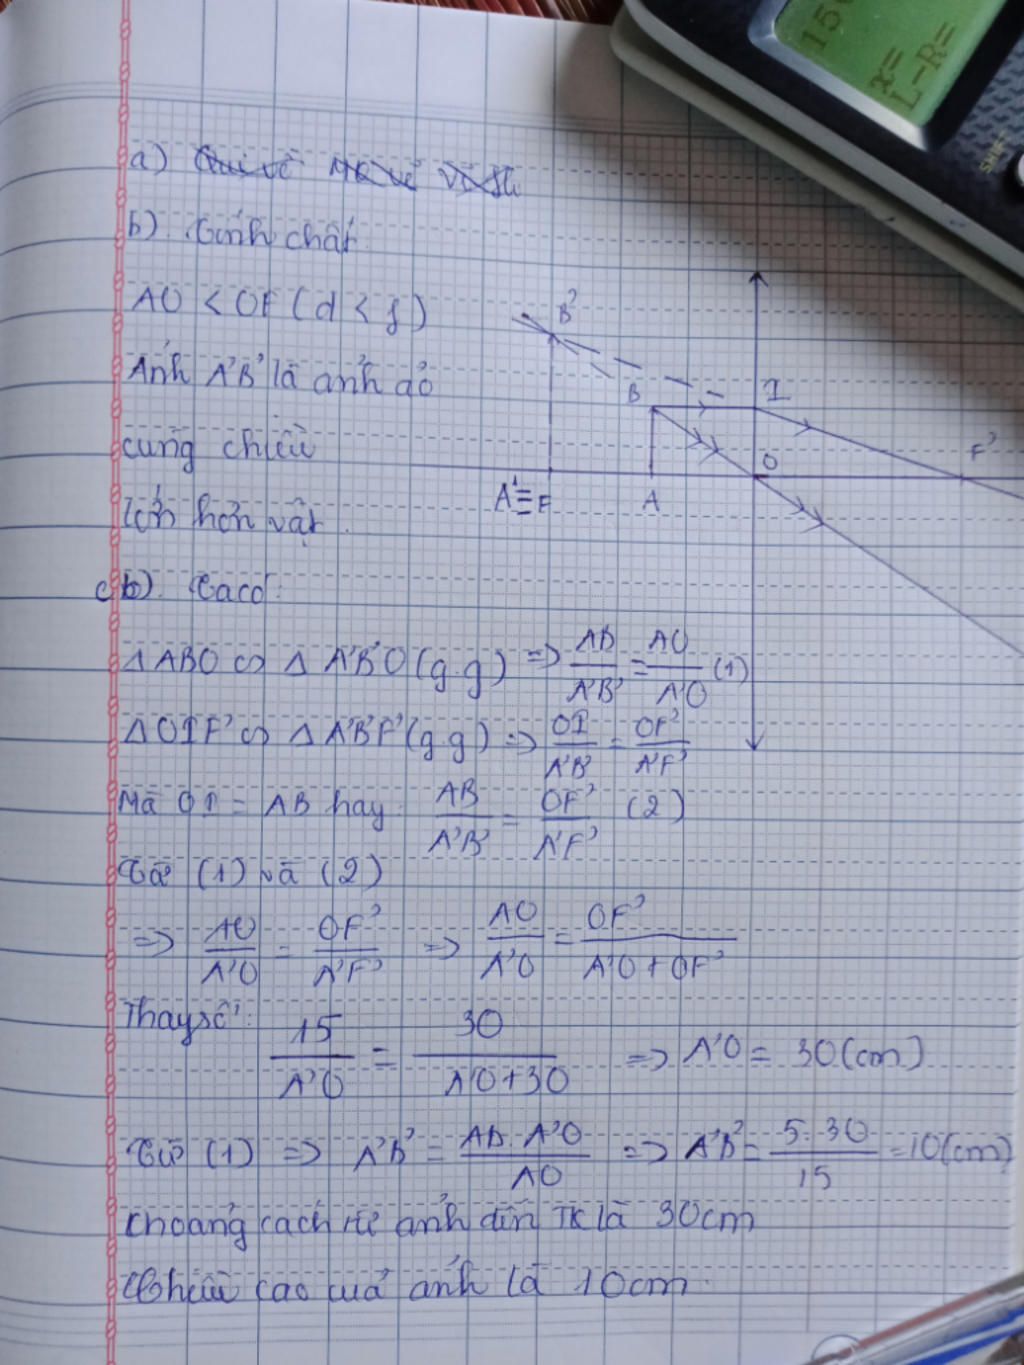 a)
b). Tính chất
AO < OF (d < f)
Ảnh A'B' là ảnh ảo
cùng chiều
lớn hơn vật.
B'
B
I
O
F'
A'≡F
A
c b). Ta có:
ΔABO ∽ ΔA'B'O (g.g) => AB/A'B' = AO/A'O (1)
ΔOIF' ∽ ΔA'B'F' (g.g) => OI/A'B' = OF'/A'F'
Mà OI = AB hay: AB/A'B' = OF'/A'F' (2)
Từ (1) và (2)
=> AO/A'O = OF'/A'F' => AO/A'O = OF'/(A'O + OF')
Thay số: 15/A'O = 30/(A'O+30) => A'O = 30 (cm)
Từ (1) => A'B' = AB.A'O/AO => A'B' = 5.30/15 = 10 (cm)
khoảng cách từ ảnh đến TK là 30cm
Chiều cao của ảnh là 10cm.
15
x=
L-R=
SHIFT